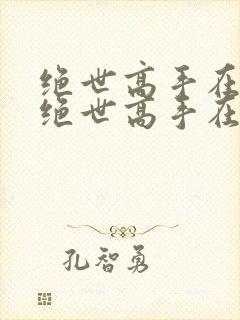 绝世高手在
绝世高手在
孔智勇